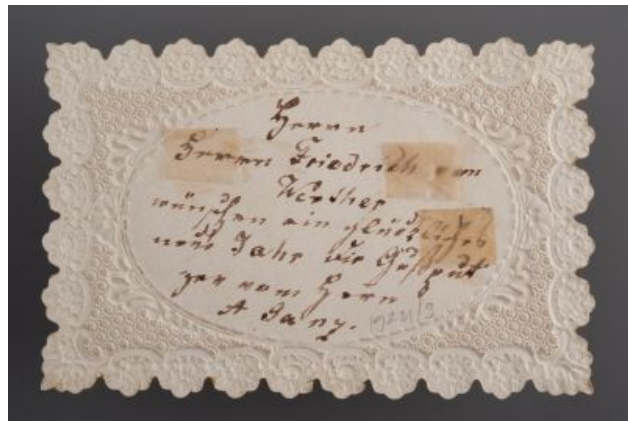 Herrn
Herrn Friedrich von
Werther
wünschen ein glückliches
neue Jahr die Gaßput
zer vom Herrn
A Jany.
1922/9